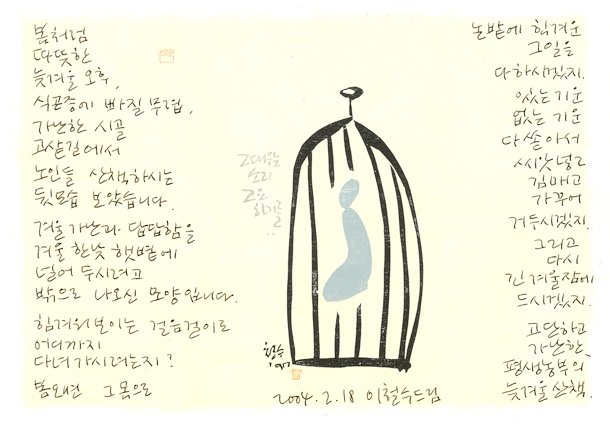 봄처럼
따뜻한
늦겨울 오후,
식곤증에 빠질 무렵,
가난한 시골
고샅길에서
노인들 산책하시는
뒷모습 보았습니다.
겨울 가난과 답답함을
겨울 한낮 햇볕에
널어 두시려고
밖으로 나오신 모양입니다.
힘겨워 보이는 걸음걸이로
어디까지
다녀가시려는지?
봄오면 그 몸으로
논밭에 힘겨운
그 일을
다하시겠지.
있는 기운
없는 기운
다 쏟아서
씨앗 넣고
김매고
가꾸어
거두시겠지.
그리고
다시
긴 겨울잠에
드시겠지.
고단하고
가난한,
평생농부의
늦겨울 산책.
그대 웃는
소리
철수
'97
2004. 2. 18 이철수드림